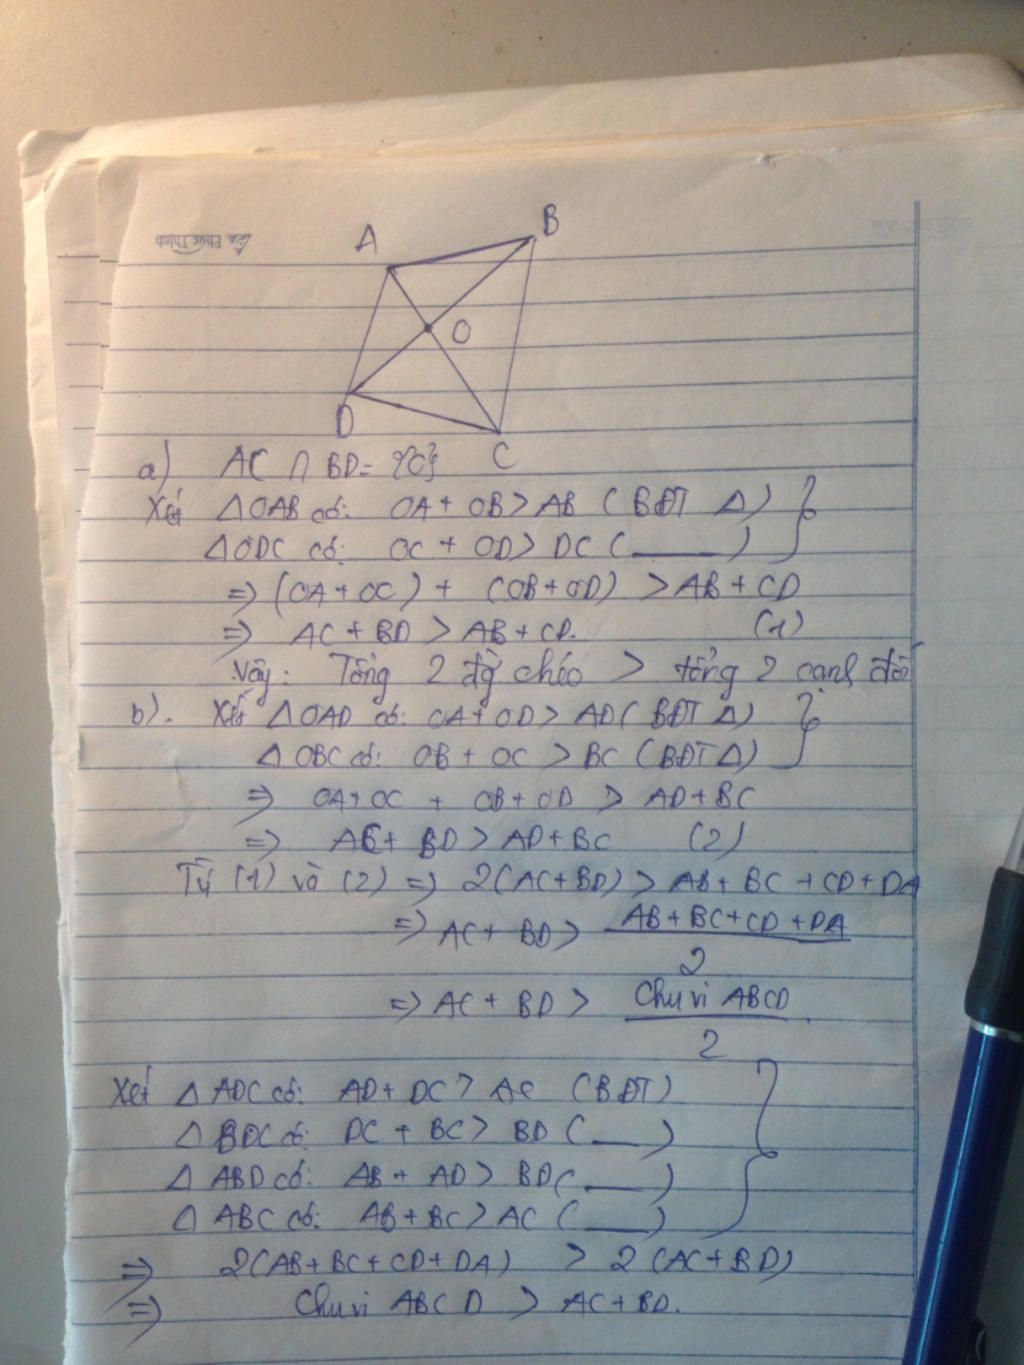 A
B
O
D
C
a) AC ∩ BD = {O}
Xét △OAB có: OA + OB > AB (BĐT △)
△ODC có: OC + OD > DC ( ___ )
=> (OA + OC) + (OB + OD) > AB + CD
=> AC + BD > AB + CD. (1)
Vậy: Tổng 2 đg chéo > tổng 2 cạnh đối
b). Xét △OAD có: OA + OD > AD (BĐT △)
△OBC có: OB + OC > BC (BĐT △)
=> OA + OC + OB + OD > AD + BC
=> AC + BD > AD + BC (2)
Từ (1) và (2) => 2(AC + BD) > AB + BC + CD + DA
=> AC + BD > AB + BC + CD + DA
2
=> AC + BD > Chu vi ABCD
2
Xét △ADC có: AD + DC > AC (BĐT)
△BDC có: DC + BC > BD ( ___ )
△ABD có: AB + AD > BD ( ___ )
△ABC có: AB + BC > AC ( ___ )
=> 2(AB + BC + CD + DA) > 2 (AC + BD)
=> Chu vi ABCD > AC + BD.